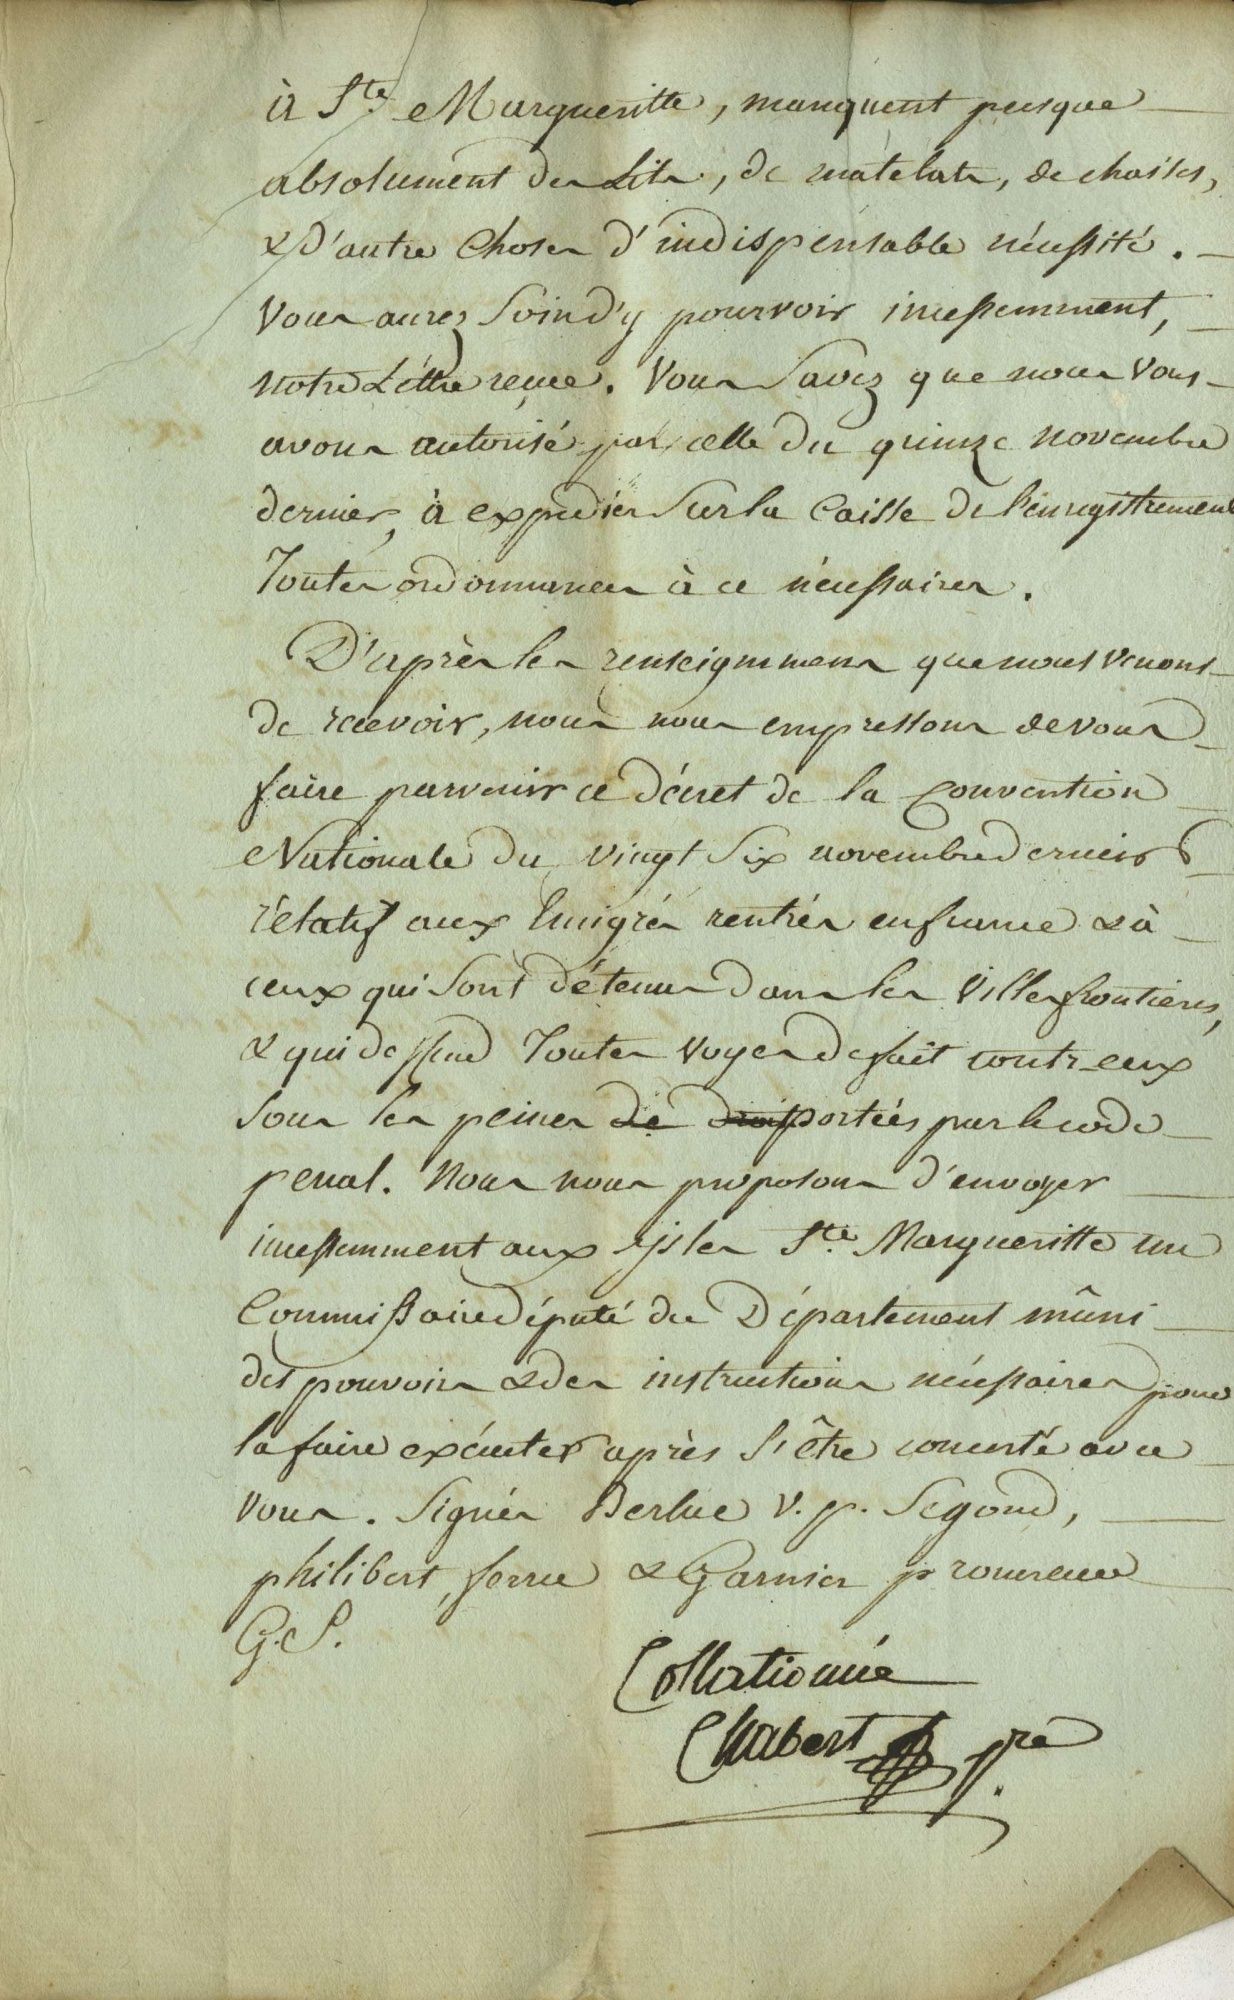 à Ste Margueritte, manquent presque
absolument des Lits, de matelats, de chaises,
& d'autre choses d'indispensable nécessité.
Vous aurez soin d'y pourvoir incessemment,
notre Léttre reçue. Vous savez que nous vous
avons autorisé par celle du quinze novembre
dernier, à expedier sur la Caisse de l'enregistrement
Toutes ordonnances à ce nécessaires.
D'après les renseignemens que nous venons
de recevoir, nous nous empressons de vous
faire parvenir ce décret de la Convention
Nationale du vingt six novembre dernier
rélatif aux Emigrés rentrés en france & à
ceux qui sont détenus dans les Villes frontieres,
& qui deffend Toutes voyes de fait contr'eux
sous les peines de portées par le code
penal. Nous nous proposons d'envoyer
incessemment aux isles Ste Margueritte un
Commissaire député du Département mûni
des pouvoirs & des instructions nécessaires pour
la faire exécuter après s'être concerté avec
vous. Signés Berlue v. p. Segond,
philibert, ferru & Garnier procureur
G. S.
Collationnée
Chabert pre